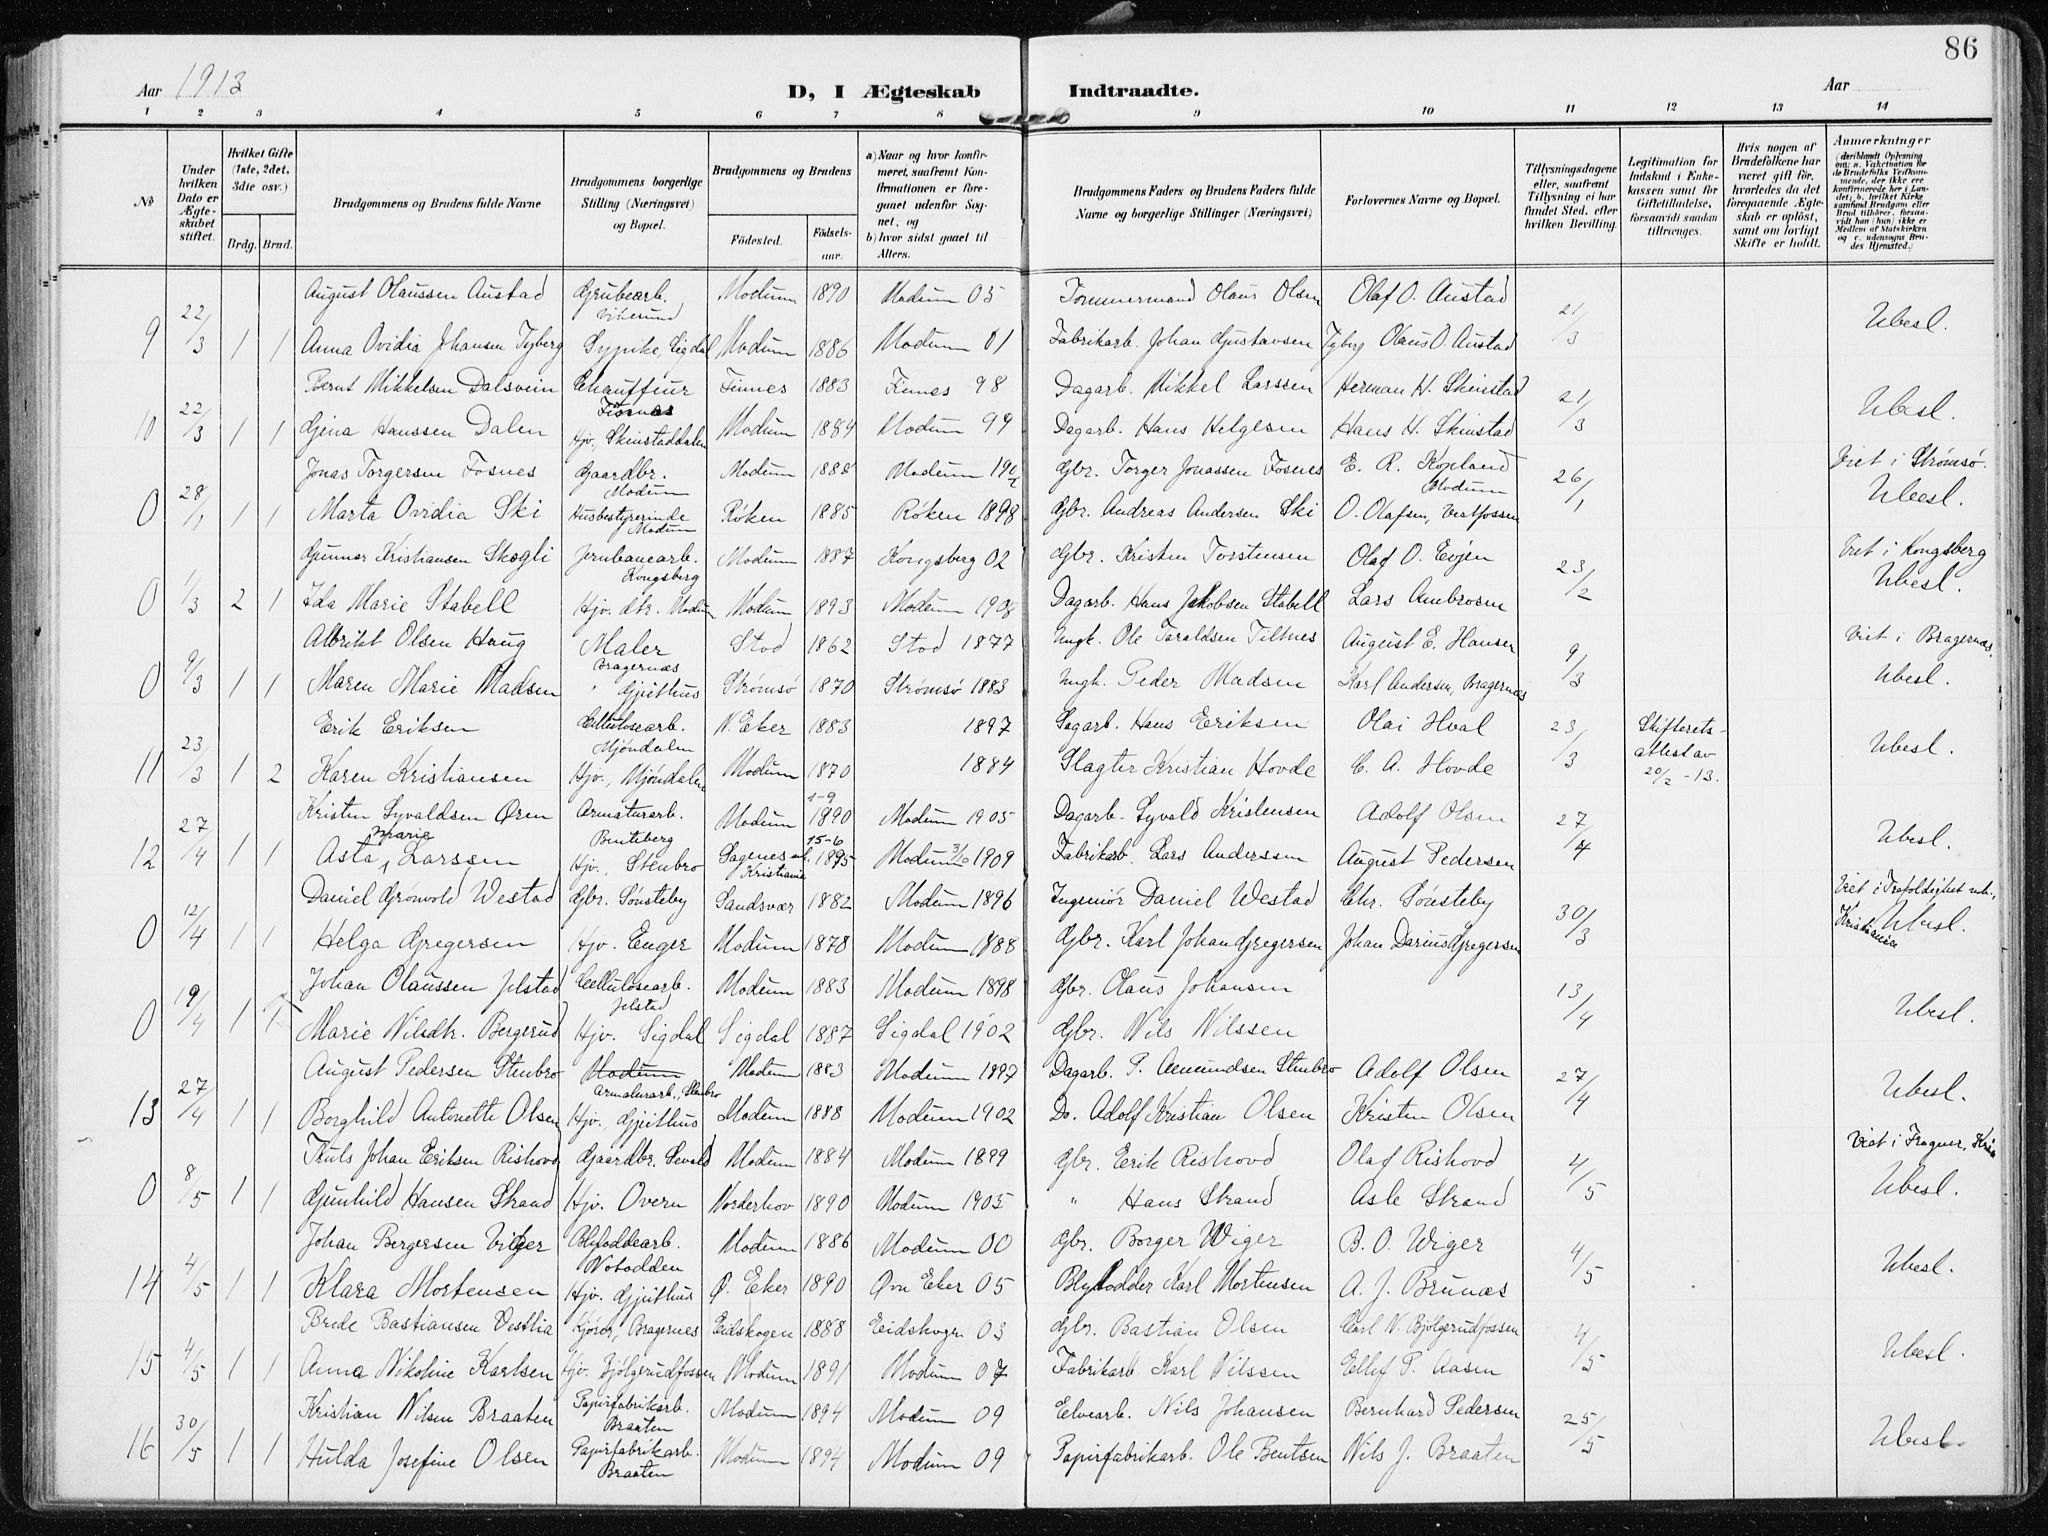 86
Aar 1913
D, I Ægteskab Indtraadte.
Aar
1 2 3 4 5 6 7 8 9 10 11 12 13 14
No
Under hvilken Dato er Ægteskabet stiftet.
Hvilket Gifte (1ste, 2det, 3die osv.)
Brdg. Brud.
Brudgommens og Brudens fulde Navne
Brudgommens borgerlige Stilling (Næringsvei) og Bopæl.
Brudgommens og Brudens
Fødested.
Fødselsaar.
a) Naar og hvor konfirmeret, saafremt Konfirmationen er foregaaet udenfor Sognet, og
b) hvor sidst gaaet til Alters.
Brudgommens Faders og Brudens Faders fulde Navne og borgerlige Stillinger (Næringsvei)
Forlovernes Navne og Bopæl.
Tillysningsdagene eller, saafremt Tillysning ei har fundet Sted, efter hvilken Bevilling.
Legitimation for Indskud i Enkekassen samt for Giftetilladelse, forsaavidt saadan tiltrænges.
Hvis nogen af Brudefolkene har været gift før, hvorledes da det foregaaende Ægteskab er opløst, samt om lovligt Skifte er holdt.
Anmærkninger (deriblandt Oplysning om: a. Vakcination for de Brudefolks Vedkommende, der ikke ere konfirmerede her i Landet; b. hvilket Kirkesamfund Brudgom eller Brud tilhører, forsaavidt han (hun) ikke er Medlem af Statskirken og c. udensogns Brudes Hjemsted.)
August Olaussen Austad Grubearb. Vikesund Modum 1890 Modum 05 Tømmermand Olaus Olsen Olaf O. Austad
9 22/3 1 1 Anna Ovidia Johansen Tyberg Sypike, Sigdal Modum 1886 Modum 01 Fabrikarb. Johan Gustavsen Tyberg Olaus O. Austad 21/3 Ubesl.
Bernt Mikkelsen Dalsvein Chauffeur Finnes 1883 Finnes 98 Dagarb. Mikkel Larssen Herman H. Skinstad
10 22/3 1 1 Gina Hanssen Dalen Hjv., Skinstaddalen Modum 1884 Modum 99 Dagarb. Hans Helgesen Hans H. Skinstad 21/3 Ubesl.
Jonas Torgersen Fosnes Gaardbr. Modum Modum 1888 Modum Gbr. Torger Jonassen Fosnes E. R. Kopland Modum Viet i Strømsø.
0 28/1 1 1 Marta Ovidia Ski Husbestyrerinde Modum Røken 1885 Røken 1898 Gbr. Andreas Andersen Ski O. Olafsen, Vestfossen 26/1 Ubesl.
Gunnar Kristiansen Skogli Jernbanearb. Kongsberg Modum 1887 Kongsberg 02 Gbr. Kristen Torstensen Olaf O. Evjen Viet i Kongsberg
0 1/3 2 1 Ida Marie Stabell Hjv. dtr. Modum Modum 1893 Modum 1908 Dagarb. Hans Jakobsen Stabell Lars Ambrosen 23/2 Ubesl.
Albrikt Olsen Haug Maler Bragernæs Stod 1862 Stod 1877 Ungk. Ole Taraldsen Tiltnes August E. Hansen Viet i Bragernæs.
0 9/3 1 1 Maren Marie Madsen " Gjeithus Strømsø 1870 Strømsø 1883 Ungk. Peder Madsen Karl Andersen, Bragernæs 9/3 Ubesl.
Erik Eriksen Cellulosearb. Mjøndalen N. Eker 1883 1897 Sagarb. Hans Eriksen Olai Hval Skifterets-
11 23/3 1 2 Karen Kristiansen Hjv., Mjøndalen Modum 1870 1884 Slagter Kristian Hovde C. A. Hovde 23/3 attest av 20/2 -13. Ubesl.
Kristen Syvaldsen Øren Armaturarb. Bentsberg Modum 1-9 1890 Modum 1905 Dagarb. Syvald Kristensen Adolf Olsen
12 27/4 1 1 Asta Marie Larssen Hjv., Stenbro Sagenes Kristiania 15-6 1895 Modum 3/10 1909 Fabrikarb. Lars Anderssen August Pedersen 27/4 Ubesl.
Daniel Grønvold Westad Gbr. Sønsteby Sandsvær 1882 Modum 1896 Ingeniør Daniel Westad Chr. Sønsteby Viet i Trefoldighet
0 12/4 1 1 Helga Gregersen Hjv. Enger Modum 1878 Modum 1888 Gbr. Karl Johan Gregersen Johan Darius Gregersen 30/3 Kristiania Ubesl.
Johan Olaussen Jelstad Cellulosearb. Jelstad Modum 1883 Modum 1898 Gbr. Olaus Johansen
0 19/4 1 1 Marie Nilsdtr. Bergerud Hjv. Sigdal Sigdal 1887 Sigdal 1902 Gbr. Nils Nilssen 13/4 Ubesl.
August Pedersen Stenbro Modum Armaturarb., Stenbro Modum 1883 Modum 1897 Dagarb. P. Aamundsen Stenbro Adolf Olsen
13 27/4 1 1 Borghild Antonette Olsen Hjv., Gjeithus Modum 1888 Modum 1902 Do. Adolf Kristian Olsen Kristen Olsen 27/4 Ubesl.
Truls Johan Eriksen Rishovd Gaardbr. Sevald Modum 1884 Modum 1899 Gbr. Erik Rishovd Olaf Rishovd Viet i Frogner, Kria
0 8/5 1 1 Gunhild Hansen Strand Hjv. Overn Norderhov 1890 Modum 1905 " Hans Strand Asle Strand 4/5 Ubesl.
Johan Bergersen Viger Blyloddearb. Notodden Modum 1886 Modum 00 Gbr. Borger Wiger B. O. Wiger
14 4/5 1 1 Klara Mortensen Hjv. Gjeithus Ø. Eker 1890 Øvre Eker 05 Blylodder Karl Mortensen A. J. Brunæs 4/5 Ubesl.
Brede Bastiansen Vestlia Kjører, Bragernes Eidskogen 1888 Eidskogn 03 Gbr. Bastian Olsen Carl N. Bjølgerudfossen
15 4/5 1 1 Anna Nikoline Karlsen Hjv. Bjølgerudfossen Modum 1891 Modum 07 Fabrikarb. Karl Nilssen Ellef P. Aasen 4/5 Ubesl.
Kristian Nilsen Braaten Papirfabrikarb. Braaten Modum 1894 Modum 09 Elvearb. Nils Johansen Bernhard Pedersen
16 30/5 1 1 Hulda Josefine Olsen Papirfabrikarb. Braaten Modum 1894 Modum 09 Papirfabrikarb. Ole Bentsen Nils J. Braaten 25/5 Ubesl.